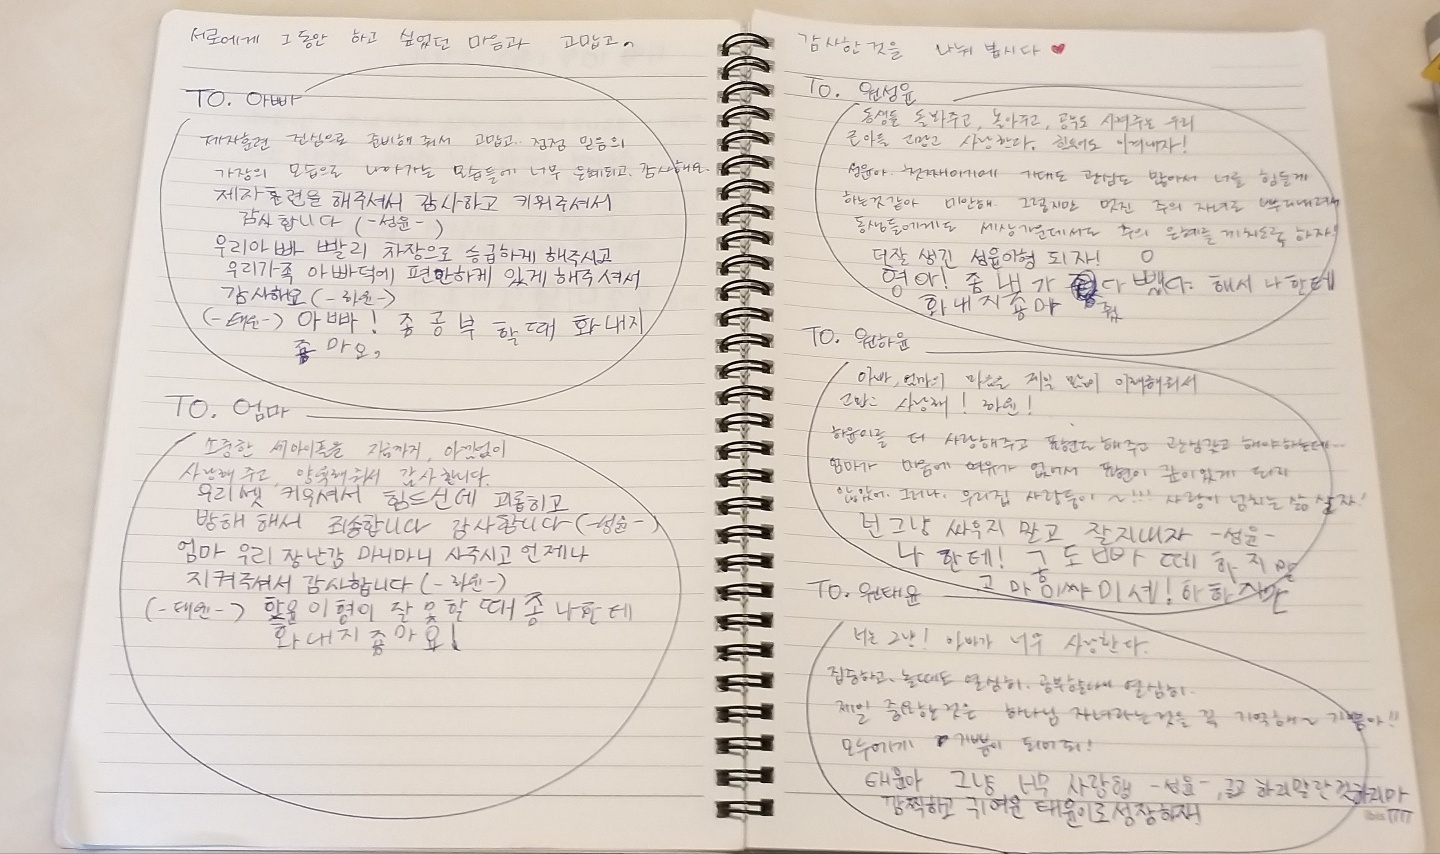 서로에게 그동안 하고 싶었던 마음과 고맙고,
TO. 아빠
제자훈련 전심으로 준비해 줘서 고맙고. 점점 믿음의
가장의 모습으로 나아가는 모습들에 너무 은혜되고, 감사해요.
제자훈련을 해주셔서 감사하고 키워주셔서
감사합니다 (-성윤-)
우리아빠 빨리 차장으로 승급하게 해주시고
우리가족 아빠덕에 편안하게 있게 해주셔서
감사해요 (-하윤-)
(-태윤-) 아빠! 좀 공부 할때 화내지
좀 마요,
TO. 엄마
소중한 세아이들을 지금까지, 아낌없이
사랑해 주고, 양육해줘서 감사합니다.
우리셋 키워셔서 힘드신데 괴롭히고
방해 해서 죄송합니다 감사합니다 (-성윤-)
엄마 우리 장난감 마니마니 사주시고 언제나
지켜주셔서 감사합니다 (-하윤-)
(-태윤-) 하윤이형이 잘못할때 좀 나한테
화내지좀마요!
감사한것을 나눠 봅시다 ♥
TO. 원성윤
동생들 돌봐주고, 놀아주고, 공부도 시켜주는 우리
큰아들 고맙고 사랑한다. 힘들어도 이겨내자!
성윤아. 첫째아이에게 기대도 관심도 많아서 너를 힘들게
하는것같아 미안해. 그렇지만 멋진 주의 자녀로
동생들에게도 세상가운데서도 주의 은혜를 하자!
더잘 생긴 성윤이형 되자!
형아! 좀 내가 다 뺐다 해서 나한테
화내지좀마
TO. 원하윤
아빠, 엄마의 마음을 제일 많이 이해해줘서
고맙고 사랑해! 하윤!
하윤이를 더 사랑해주고 표현도 해주고 관심갖고 해야하는데...
엄마가 마음에 여유가 없어서 표현이 깊이있게 되지
않았어. 그러나. 우리집 사랑둥이~!!! 사랑이 넘치는 삶 살자!
넌 그냥 싸우지 말고 잘지내자 -성윤-
나 한테! 하지말
고
TO. 원태윤
너는 그냥! 아빠가 너무 사랑한다.
집중하고. 놀때도 열심히. 공부할때 열심히.
제일 중요한것은 하나님 자녀라는것을 꼭 기억해~ 기쁨아!!
모두에게 기쁨이 되어줘!
태윤아 그냥 너무 사랑행 -성윤-, 하지말란것하지마
깜찍하고 귀여운 태윤이로성장하자!